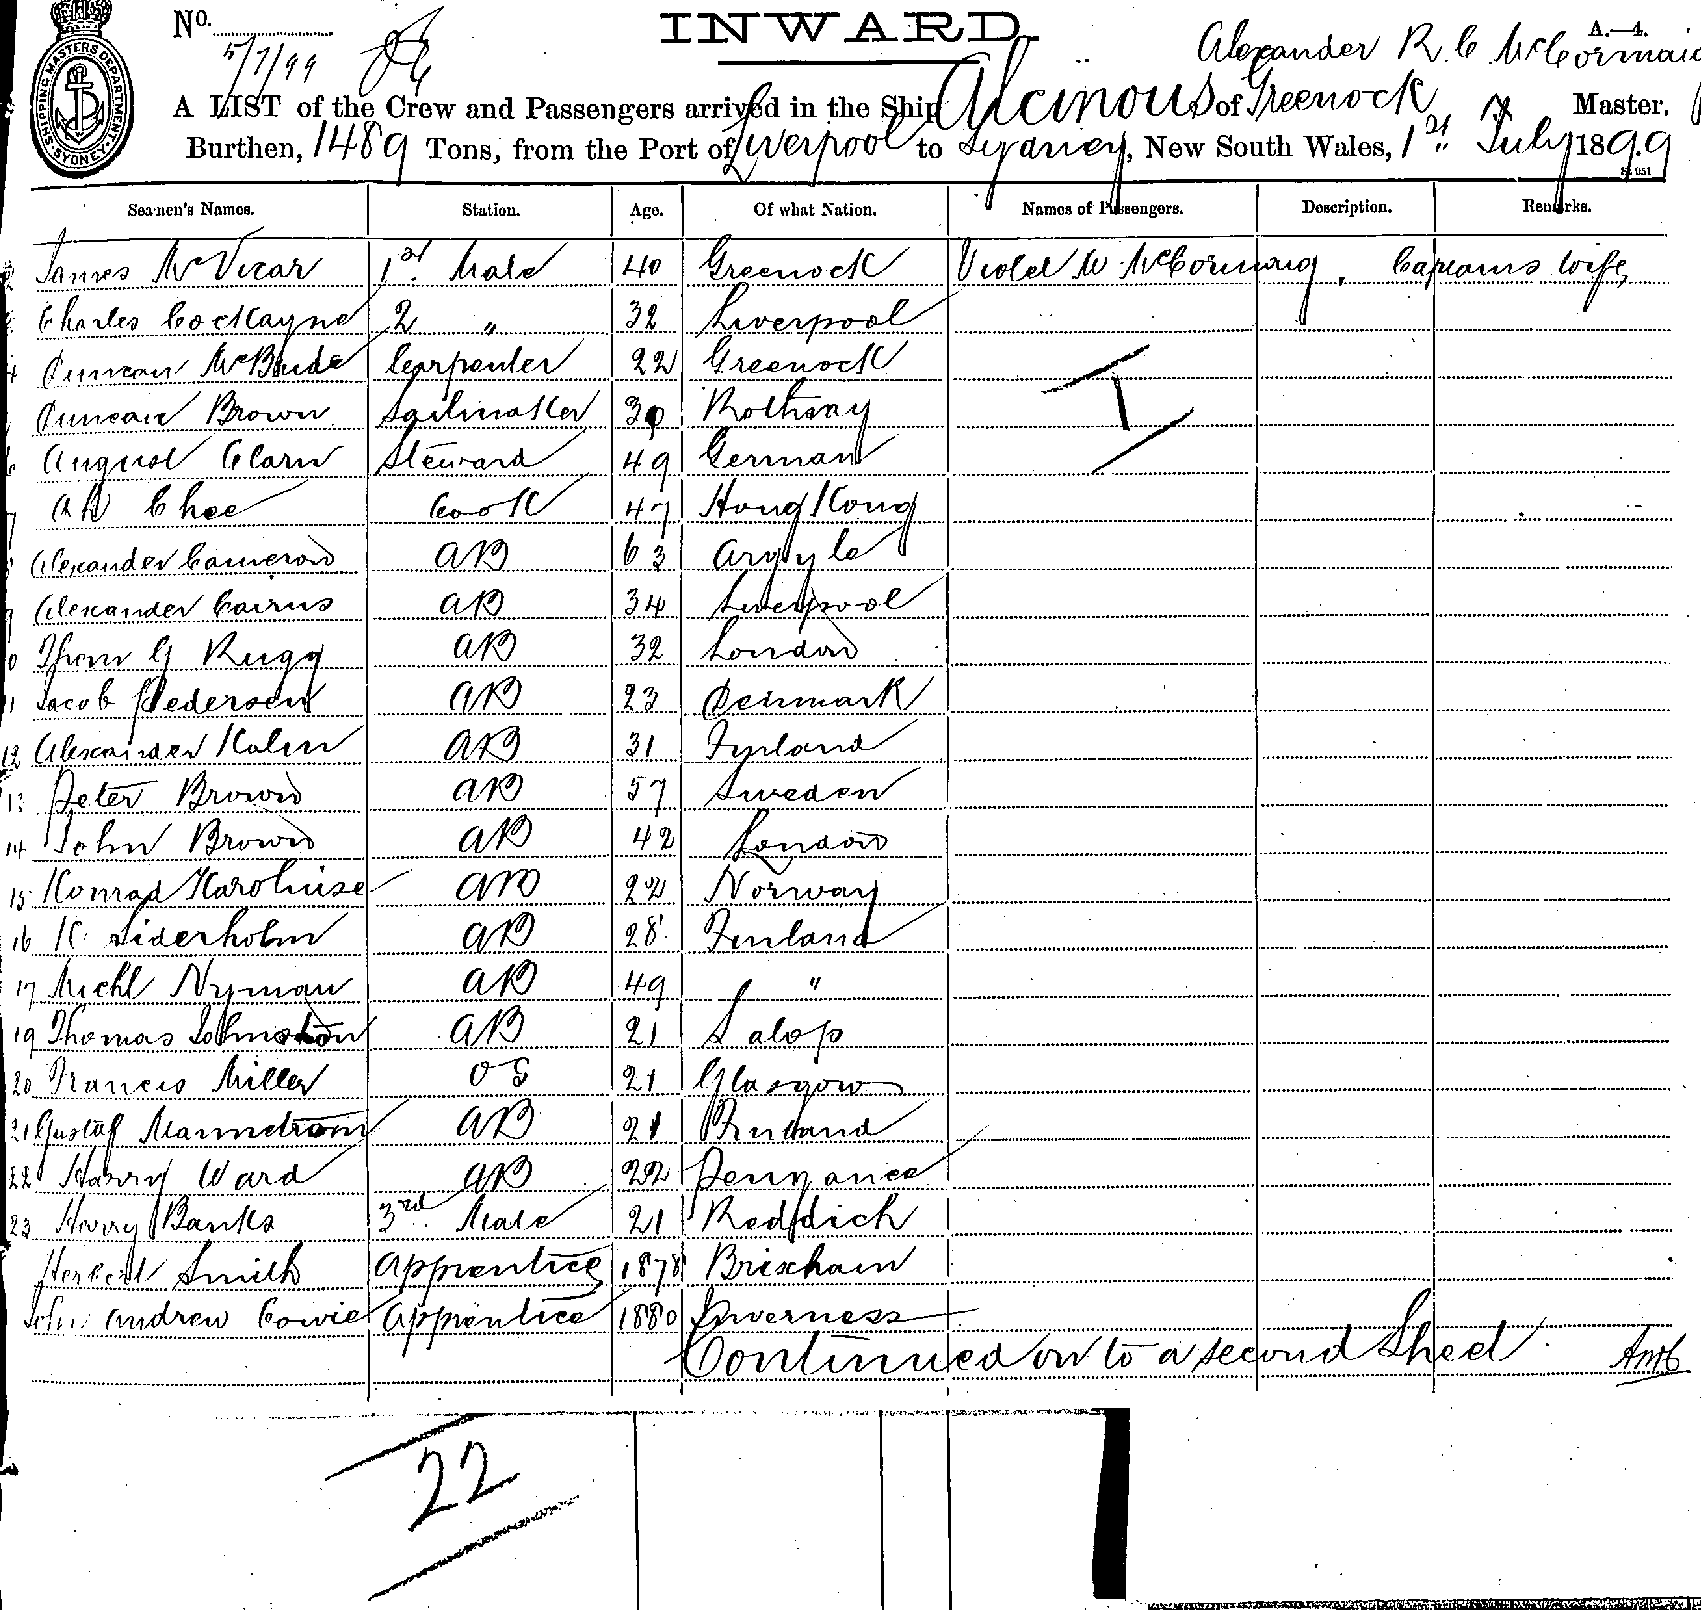 SHIPPING MASTERS DEPARTMENT. SYDNEY.
No.
5/7/99
INWARD.
A.—4.
Alexander R. C. McCormaig
A LIST of the Crew and Passengers arrived in the Ship Alcinous of Greenock Master,
Burthen, 1489 Tons, from the Port of Liverpool to Sydney, New South Wales, 1st July 1899
Seamen's Names. Station. Age. Of what Nation. Names of Passengers. Description. Remarks.
2 James McVicar 1st Mate 40 Greenock Violet W. McCormaig, Captains wife
Charles Cockayne 2 " 32 Liverpool
4 Duncan McBride Carpenter 22 Greenock
Duncan Brown Sailmaker 30 Rothsay
6 August Clarn Steward 49 German
7 Ah Chee Cook 47 Hong Kong
Alexander Cameron AB 63 Argyle
9 Alexander Cairns AB 34 Liverpool
0 Thom G Rugg AB 32 London
11 Jacob Pedersen AB 23 Denmark
12 Alexander Kalm AB 31 Fynland
13 Peter Brown AB 57 Sweden
14 John Brown AB 42 London
15 Konrad Karoliuse AB 22 Norway
16 K. Siderholm AB 28 Finland
17 Michl Nyman AB 49 "
19 Thomas Johnston AB 21 Salop
20 Francis Miller OS 21 Glasgow
21 Gustaf Mannstrom AB 21 Finland
22 Harry Ward AB 22 Penzance
23 Harry Banks 3rd Mate 21 Redditch
Herbert Smith Apprentice 1878 Brixham
John Andrew Cowie Apprentice 1880 Inverness
Continued on to a second Sheet
22